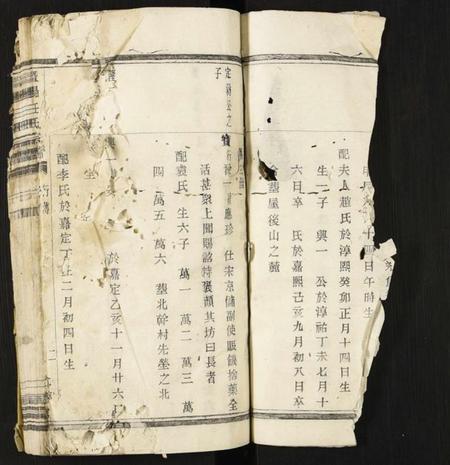 十四日午時生
配夫人趙氏於淳熙癸卯正月十四日生
生一子 興一 公於淳祐丁未七月十
六日卒 氏於嘉熙己亥九月初八日卒
葬屋後山之麓
定 公之
子
行 一 應珍 仕宋京儲副使賑饑捨藥全
活甚衆上聞賜詔特褒額其坊曰長者
配袁氏 生六子 萬一 萬二 萬三 萬
四 萬五 萬六 葬北幹村先塋之北
於嘉定乙亥十一月廿六
生
配李氏於嘉定丁丑二月初四日生